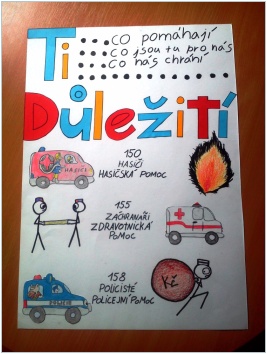 Ti
co pomáhají
co jsou tu pro nás
co nás chrání
Důležití
150
HASIČI
HASIČSKÁ POMOC
HASIČI
155
ZÁCHRANÁŘI
ZDRAVOTNICKÁ
POMOC
158
POLICISTÉ
POLICEJNÍ POMOC
POLICIE
Kč